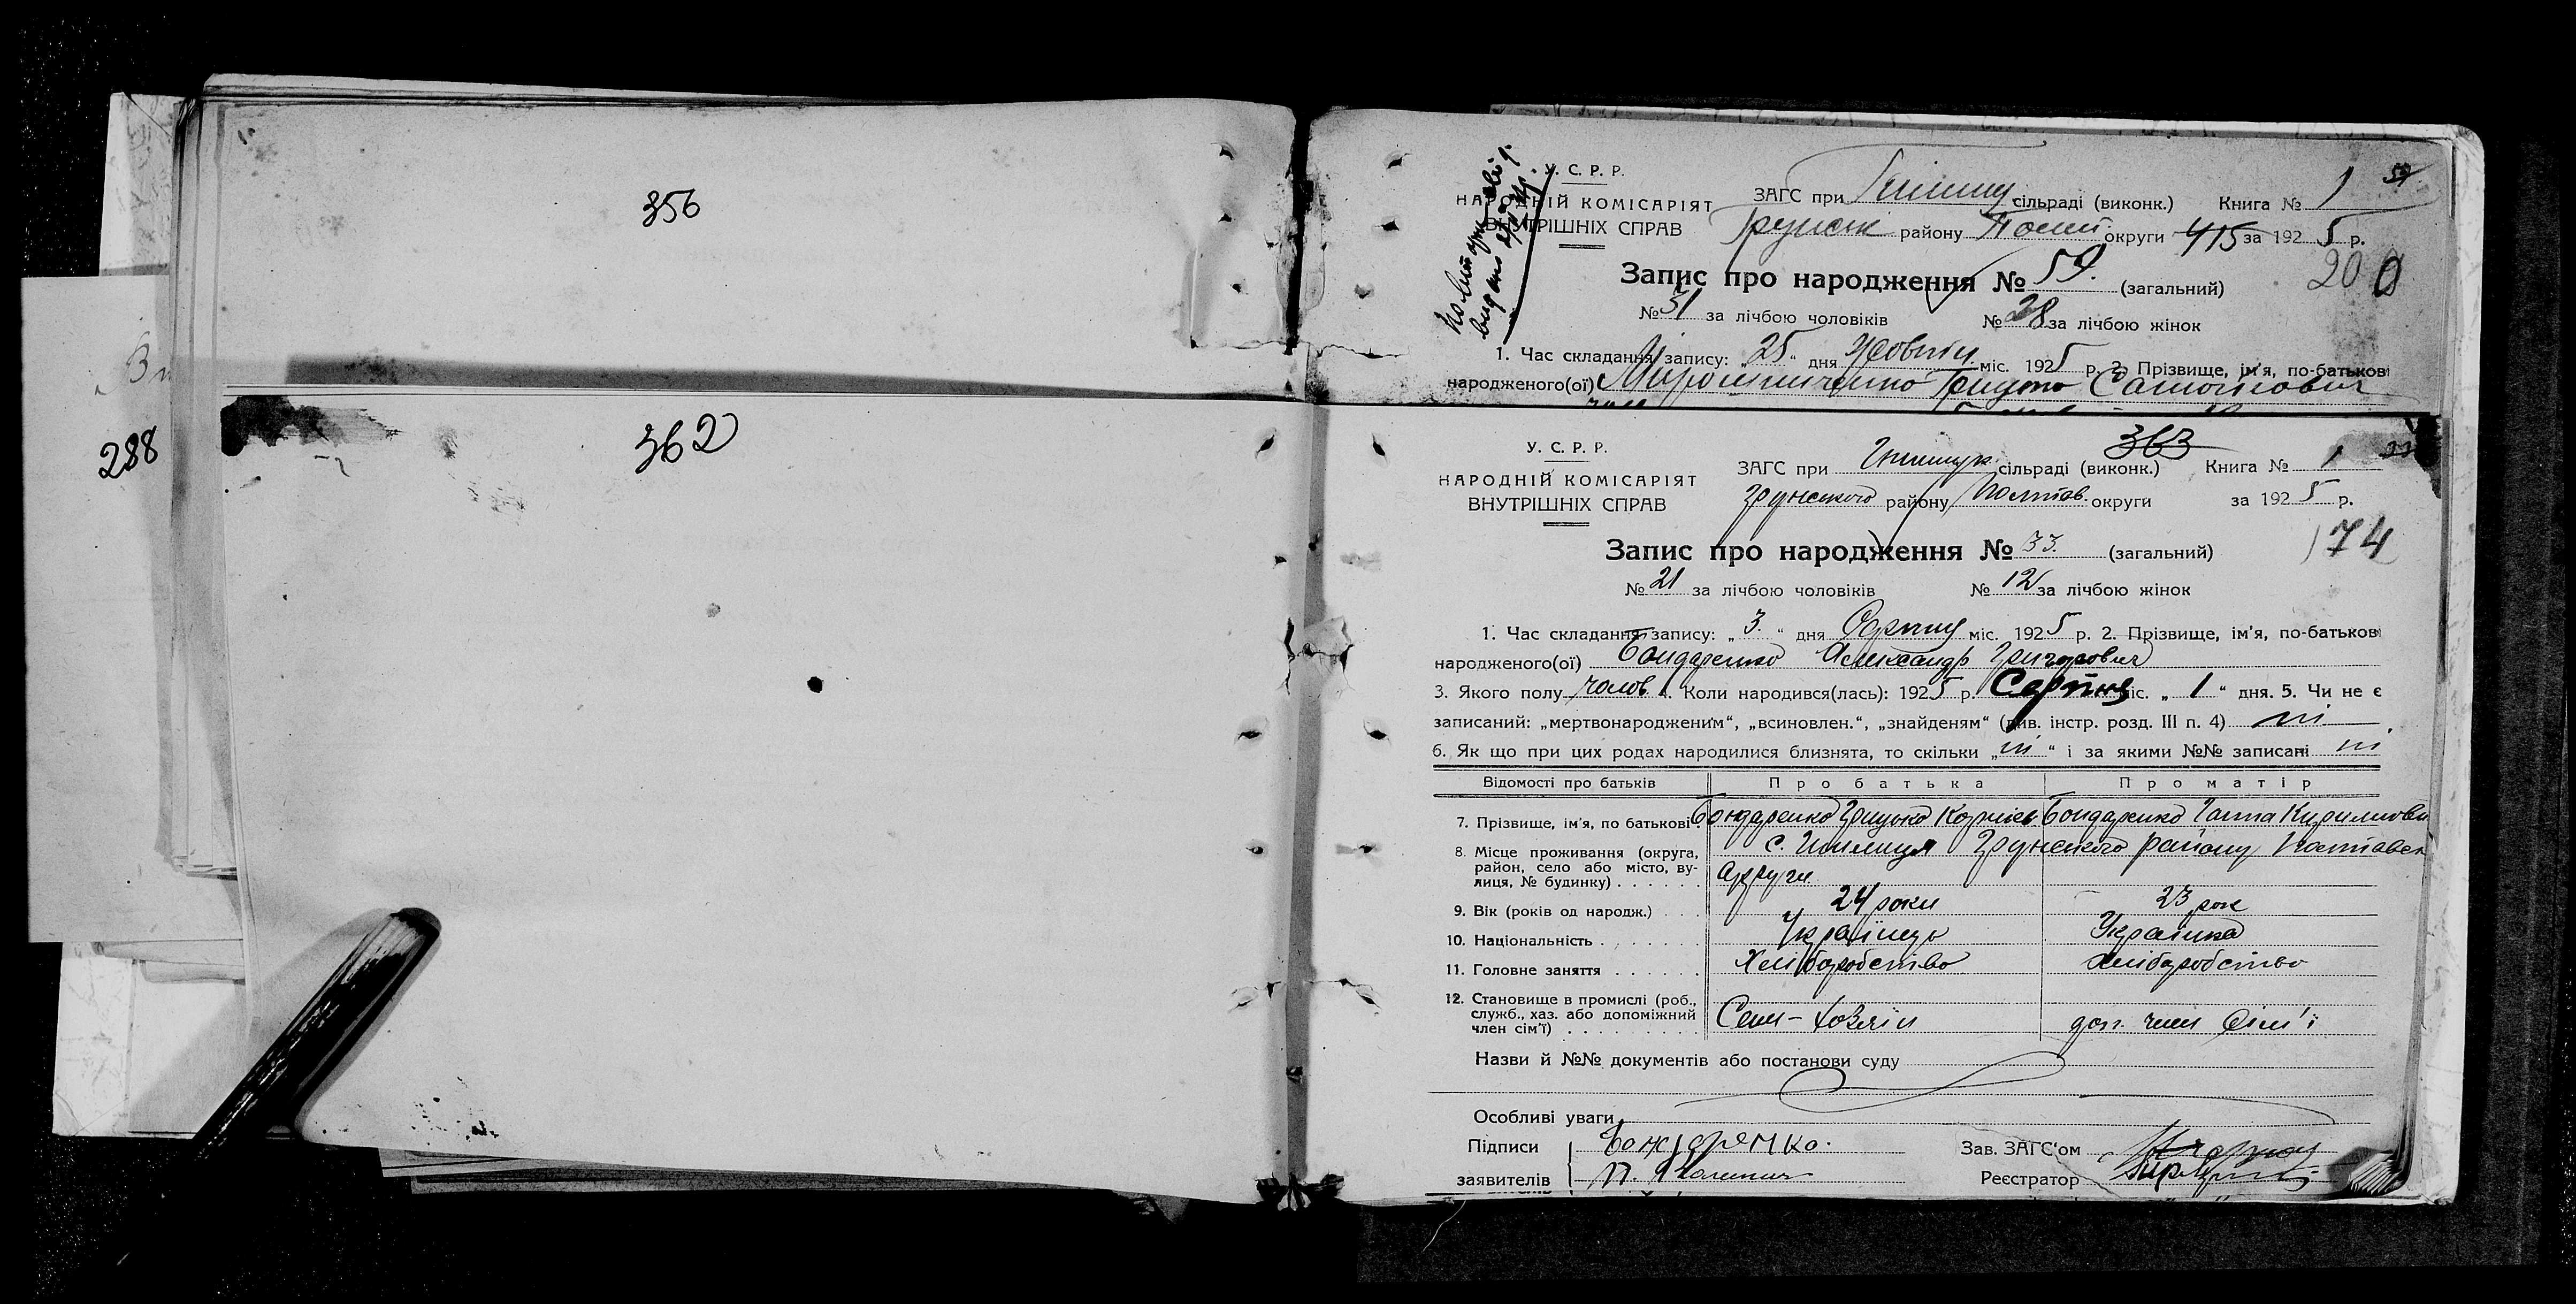 356
362
288
У. С. Р. Р.
НАРОДНІЙ КОМІСАРІЯТ
ВНУТРІШНІХ СПРАВ
ЗАГС при сільраді (виконк.) Книга № 1
Грунськ району Полт. округи 415 за 1925 р.
Запис про народження № 59. (загальний)
200
№ 31 за лічбою чоловіків № 28 за лічбою жінок
1. Час складання запису: „ 25 “ дня Жовтн. міс. 1925 р. 2. Прізвище, ім'я, по-батькові
народженого(ої) Мірошниченко Грицько
363
У. С. Р. Р.
НАРОДНІЙ КОМІСАРІЯТ
ВНУТРІШНІХ СПРАВ
ЗАГС при сільраді (виконк.) Книга № 1
Грунського району Полтав. округи за 1925 р.
Запис про народження № 33. (загальний)
174
№ 21 за лічбою чоловіків № 12 за лічбою жінок
1. Час складання запису: „ 3. “ дня Серпня міс. 1925 р. 2. Прізвище, ім'я, по-батькові
народженого(ої) Бондаренко Александр Григорович
3. Якого полу чолов. Коли народився(лась): 1925 р. Серпня міс. „ 1 “ дня. 5. Чи не є
записаний: „мертвонародженим“, „всиновлен.“, „знайденям“ (див. інстр. розд. III п. 4) ні
6. Як що при цих родах народилися близнята, то скільки „ ні “ і за якими №№ записані ні
Відомості про батьків Про батька Про матір
7. Прізвище, ім'я, по батькові. Бондаренко Грицько Корнієв Бондаренко Ганна Кирилловн
8. Місце проживання (округа, район, село або місто, вулиця, № будинку) с. Грунського району Полтавск
округи
9. Вік (років од народж.) 24 роки 23 рок
10. Національність Українець Українка
11. Головне заняття Хліборобство хліборобство
12. Становище в промислі (роб., служб., хаз. або допоміжний член сім'ї) Селян-хозяїн доп. член сім'ї
Назви й №№ документів або постанови суду
Особливі уваги
Підписи Бондаренко. Зав. ЗАГС'ом
заявителів Реєстратор